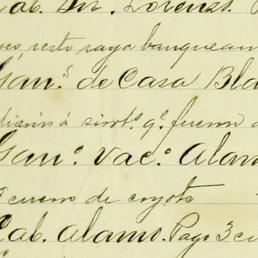 Cab. Sn. Lorenzo.
resto raya banquean
Gans. de Casa Bla
diarios á sirvts. q. fueron
Gano. Vaco. Alam
cueros de coyote
Cab. Alams. Pago 3 c